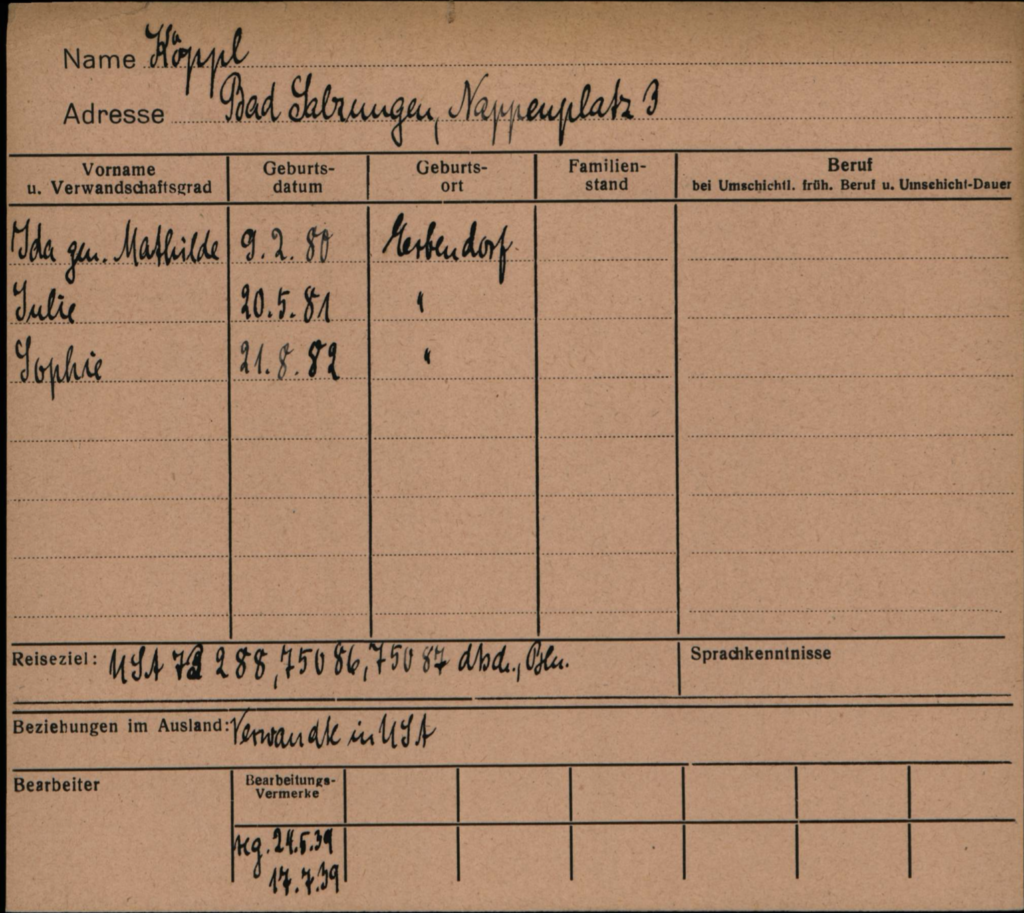 Name Köppl
Adresse Bad Salzungen, Nappenplatz 3
Vorname u. Verwandschaftsgrad
Geburts-datum
Geburts-ort
Familien-stand
Beruf
bei Umschichtl. früh. Beruf u. Umschicht-Dauer
Ida gen. Mathilde 9.2.80 Erbendorf
Julie 20.5.81 "
Sophie 21.8.82 "
Reiseziel: USA 288, 75086, 75087 Bln.
Sprachkenntnisse
Beziehungen im Ausland: Verwandte in USA
Bearbeiter
Bearbeitungs-Vermerke
reg. 24.5.39
17.7.39